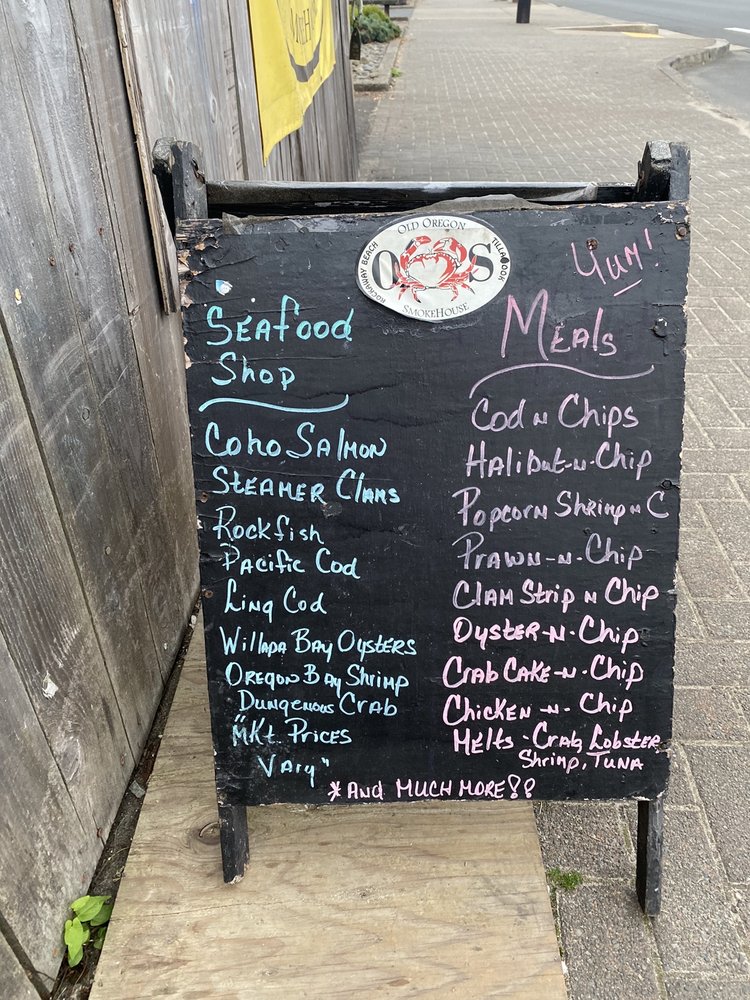 OLD OREGON
ROCKAWAY BEACH
TILLAMOOK
O S
SMOKEHOUSE
Yum!
Seafood
Shop
Coho Salmon
Steamer Clams
Rockfish
Pacific Cod
Ling Cod
Willapa Bay Oysters
Oregon Bay Shrimp
Dungenous Crab
"Mkt. Prices
Vary"
Meals
Cod n Chips
Halibut-n-Chip
Popcorn Shrimp n C
Prawn-n-Chip
Clam Strip n Chip
Oyster-n-Chip
Crab Cake-n-Chip
Chicken-n-Chip
Melts-Crab, Lobster
Shrimp, Tuna
*And Much More!!